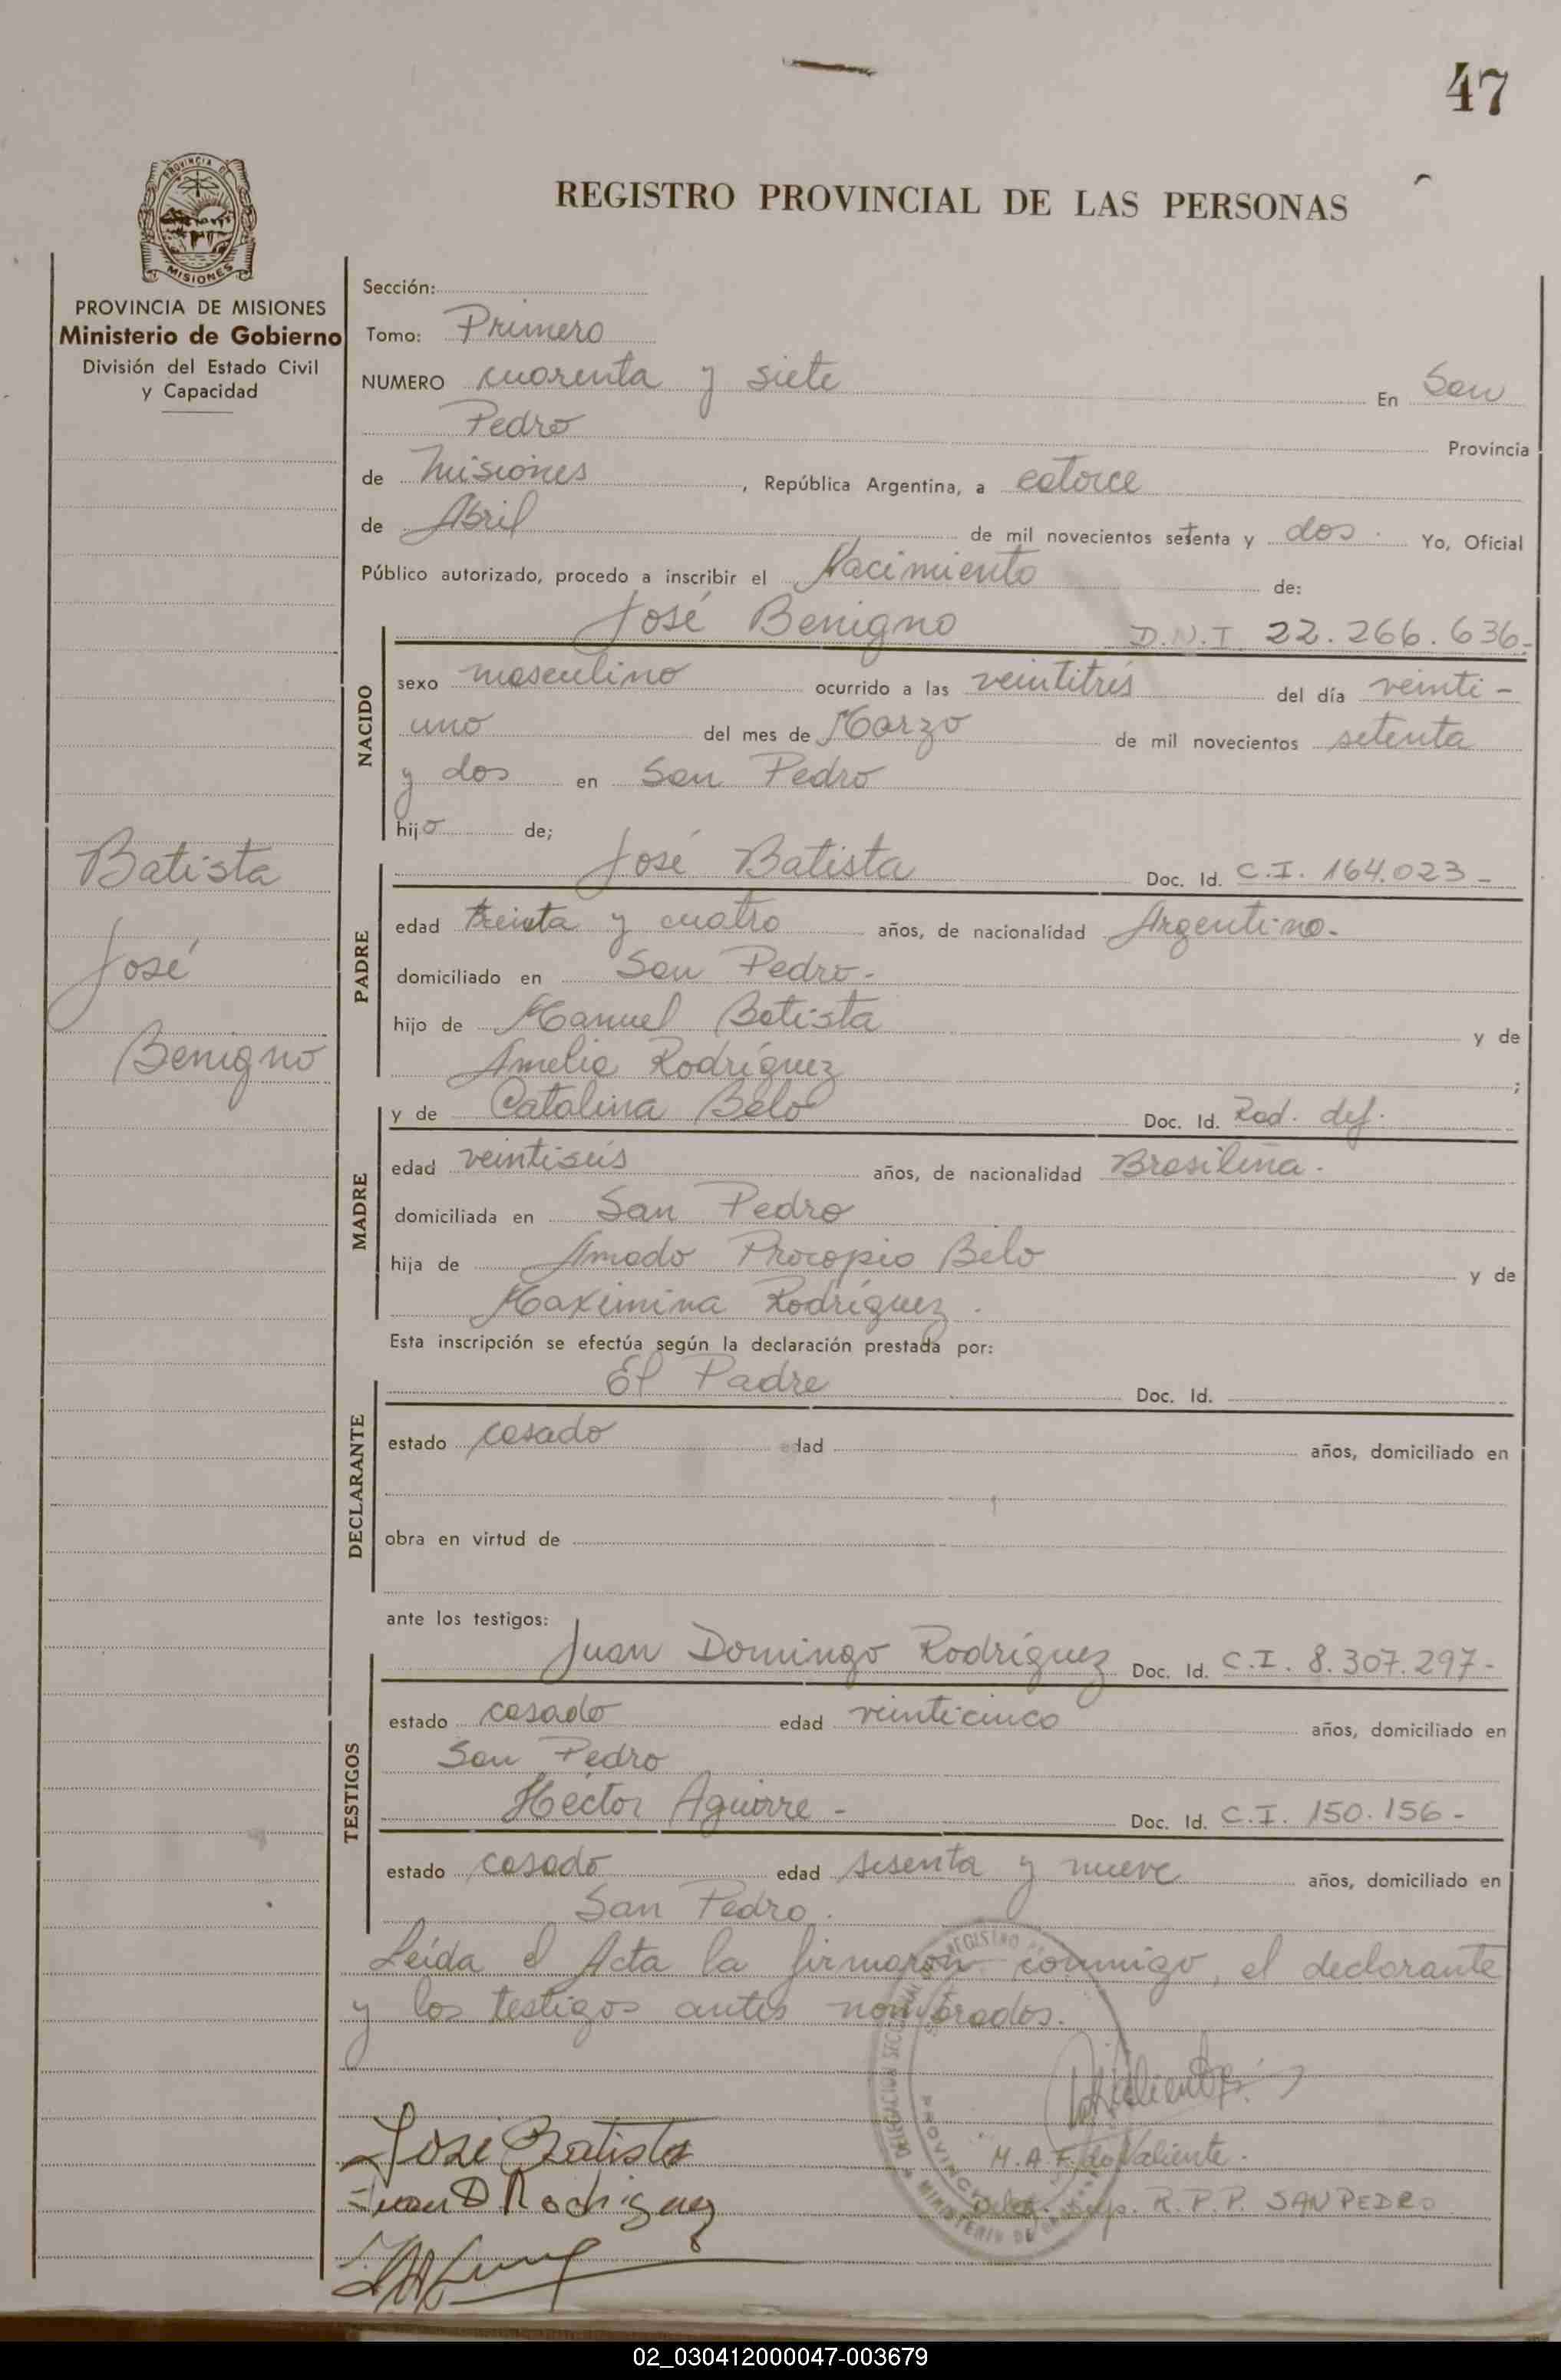 47
PROVINCIA
MISIONES
REGISTRO PROVINCIAL DE LAS PERSONAS
PROVINCIA DE MISIONES
Ministerio de Gobierno
División del Estado Civil
y Capacidad
Sección:
Tomo: Primero
NUMERO cuarenta y siete En San
Pedro Provincia
de Misiones , República Argentina, a catorce
de Abril de mil novecientos setenta y dos. Yo, Oficial
Público autorizado, procedo a inscribir el Nacimiento de:
José Benigno D.N.I. 22.266.636.-
NACIDO
sexo masculino ocurrido a las veintitrés del día veinti-
uno del mes de Marzo de mil novecientos setenta
y dos en San Pedro
hijo de;
Batista
José
Benigno
PADRE
José Batista Doc. Id. C.I. 164.023-
edad treinta y cuatro años, de nacionalidad Argentino.-
domiciliado en San Pedro.-
hijo de Manuel Batista y de
Amelia Rodríguez ;
MADRE
y de Catalina Belo Doc. Id. Rad. def.
edad veintiseis años, de nacionalidad Brasileña.
domiciliada en San Pedro
hija de Amado Procopio Belo y de
Maximina Rodríguez.
Esta inscripción se efectúa según la declaración prestada por:
DECLARANTE
El Padre Doc. Id.
estado casado edad años, domiciliado en
obra en virtud de
ante los testigos:
TESTIGOS
Juan Domingo Rodríguez Doc. Id. C.I. 8.307.297-
estado casado edad veinticinco años, domiciliado en
San Pedro
Héctor Aguirre - Doc. Id. C.I. 150.156-
estado casado edad sesenta y nueve años, domiciliado en
San Pedro.
Leída el Acta la firmaron conmigo, el declarante
y los testigos antes nombrados.
José Batista
Juan D Rodriguez
M.A.F. do Valiente.
R.P.P. SAN PEDRO
02_030412000047-003679